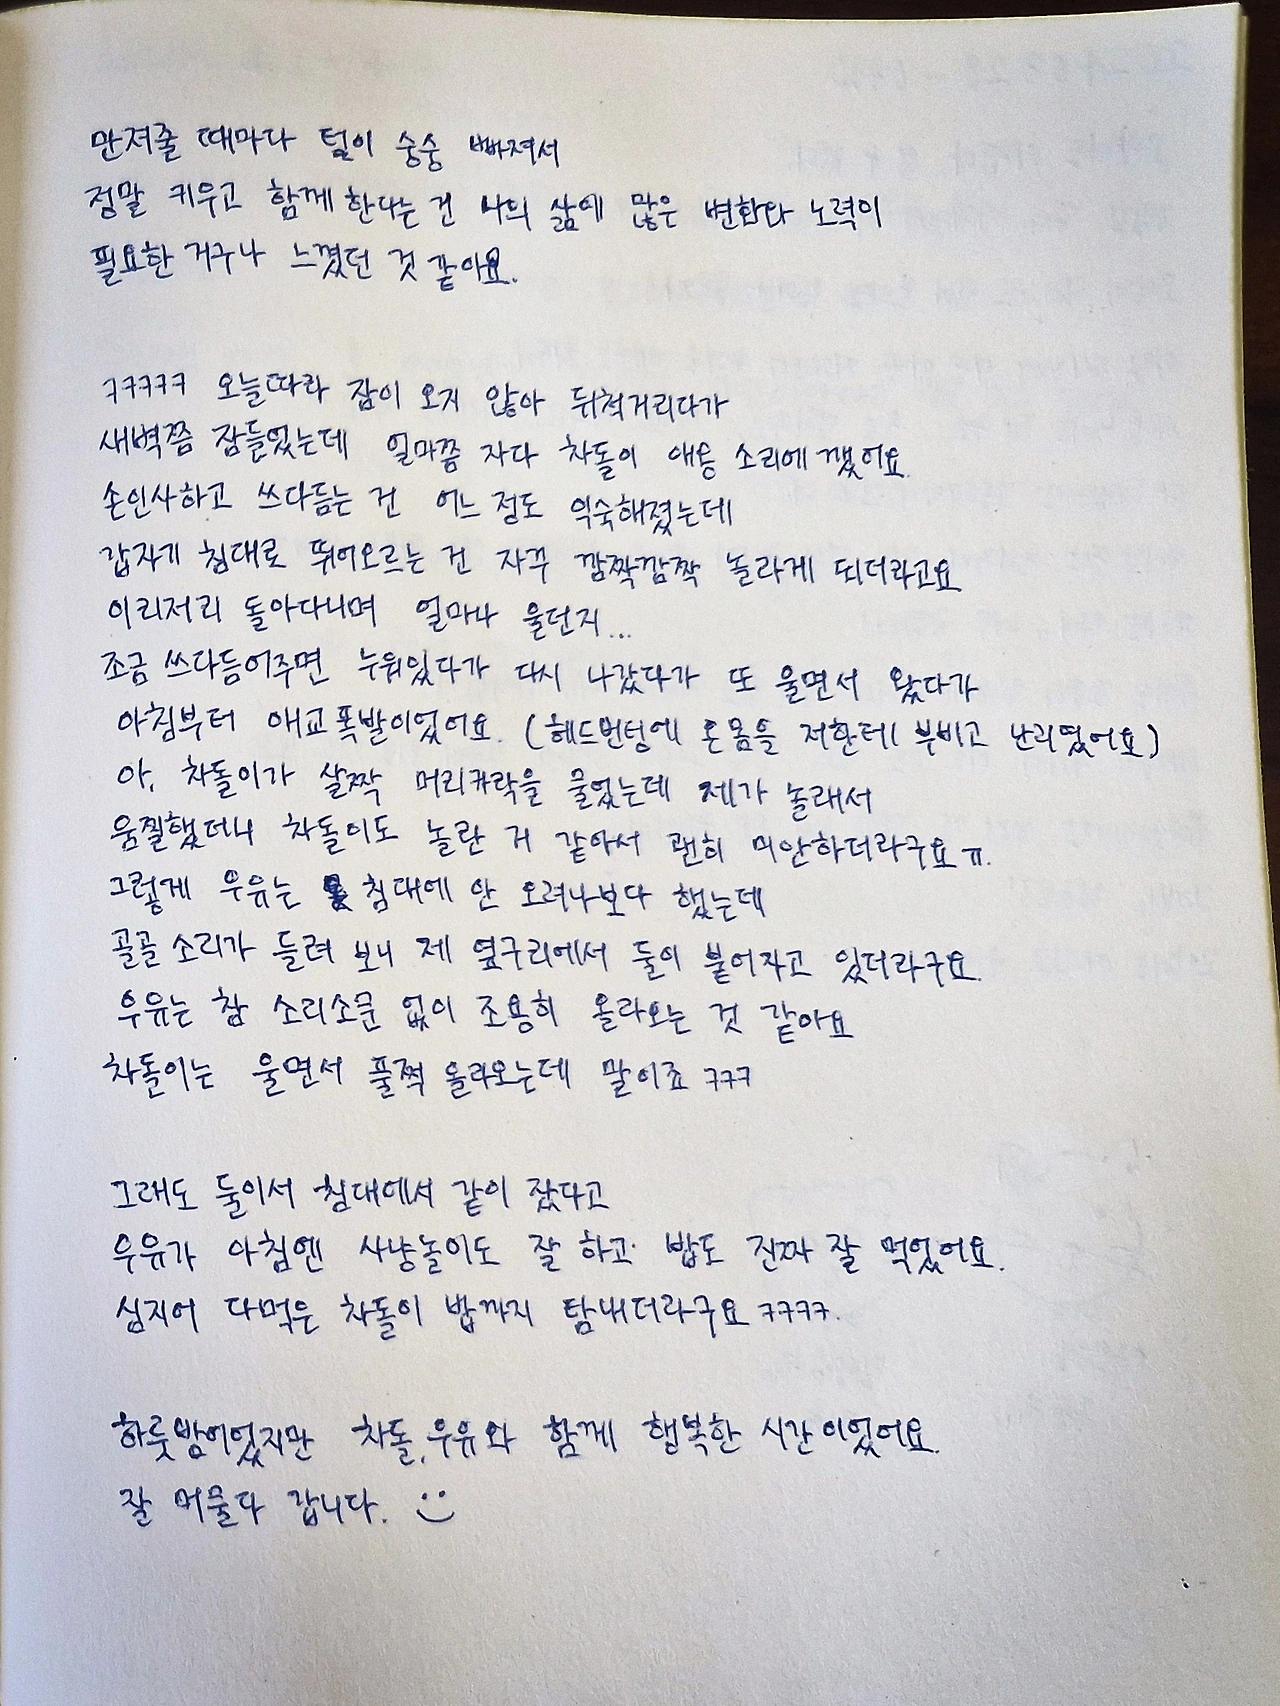 만져줄 때마다 털이 숭숭 빠져서
정말 키우고 함께 한다는 건 나의 삶에 많은 변화와 노력이
필요한 거구나 느꼈던 것 같아요.
ㅋㅋㅋㅋㅋ 오늘따라 잠이 오지 않아 뒤척거리다가
새벽쯤 잠들었는데 얼마쯤 자다 차돌이 애옹 소리에 깼어요.
손인사하고 쓰다듬는 건 어느 정도 익숙해졌는데
갑자기 침대로 뛰어오르는 건 자꾸 깜짝깜짝 놀라게 되더라고요
이리저리 돌아다니며 얼마나 울던지...
조금 쓰다듬어주면 누워있다가 다시 나갔다가 또 울면서 왔다가
아침부터 애교폭발이었어요. (헤드번팅에 온몸을 저한테 부비고 난리였어요)
아, 차돌이가 살짝 머리카락을 물었는데 제가 놀래서
움찔했더니 차돌이도 놀란 거 같아서 괜히 미안하더라구요ㅠ.
그렇게 우유는 침대에 안 오려나보다 했는데
골골 소리가 들려 보니 제 옆구리에서 둘이 붙어자고 있더라구요.
우유는 참 소리소문 없이 조용히 올라오는 것 같아요
차돌이는 울면서 풀쩍 올라오는데 말이죠 ㅋㅋㅋ
그래도 둘이서 침대에서 같이 잤다고
우유가 아침엔 사냥놀이도 잘 하고 밥도 진짜 잘 먹었어요.
심지어 다먹은 차돌이 밥까지 탐내더라구요 ㅋㅋㅋㅋ.
하룻밤이었지만 차돌,우유와 함께 행복한 시간이었어요.
잘 머물다 갑니다.